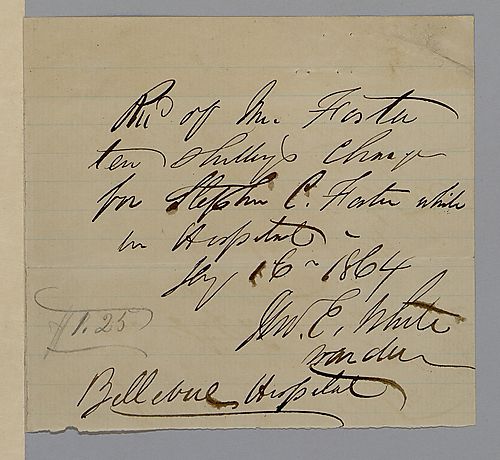 Rec'd of Mr. Foster
ten shillings charge
for Stephen C. Foster while
in Hospital
Jany 16 1864
$1.25
Jno. E. White
warden
Bellevue Hospital